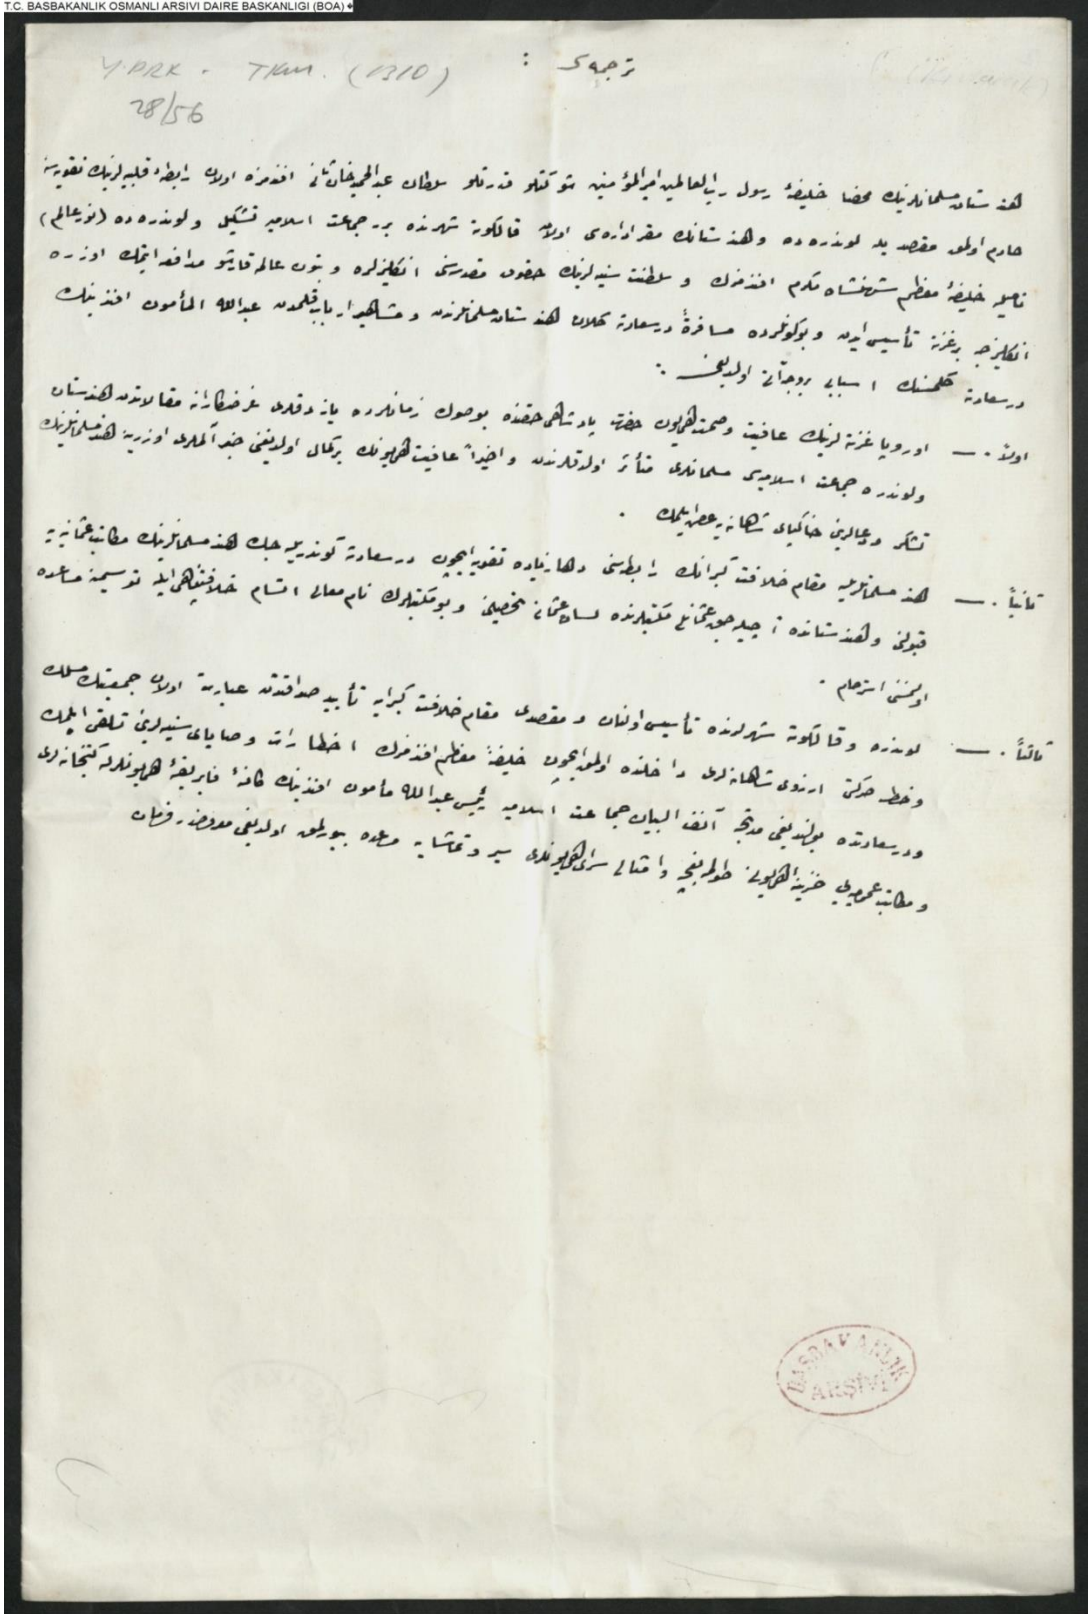 T.C. BASBAKANLIK OSMANLI ARSIVI DAIRE BASKANLIGI (BOA)
Y.PRK. TKM. (1310)
28/56
ترجمه‌سی :
هندستان مسلمانلرینك محضا خلیفهٔ رسول رب العالمین امیر المؤمنین شوكتلو قدرتلو سلطان عبدالحمید خان ثانی افندمزه اولان رابطهٔ قلبیه‌لرینك تقویه‌سنه
خادم اولمق مقصدیله لوندره‌ده و هندستانك مقر اداره‌سی اولان قالكوته شهرنده برر جماعت اسلامیه تشكیل و لوندره‌ده (نور عالم)
نامیله خلیفهٔ معظم شهنشاه مكرم افندمزك و سلطنت سنیه‌لرینك حقوق مقدسه‌سنی انكلیزلره و بتون عالمه قارشو مدافعه ایتمك اوزره
انكلیزجه بر غزته تأسیس ایدن و بوكونلرده مسافرةً درسعادته كلان هندستان مسلمانلرندن و مشاهیر ارباب قلمدن عبدالله المأمون افندینك
درسعادته كلمسنك اسبابی بروجه آتی اولدیغی :
اولاً . — اوروپا غزته‌لرینك عافیت و صحت همایون حضرت پادشاهی حقنده بو صوك زمانلرده یازدقلری غرضكارانه مقالاتدن هندستان
و لوندره جماعت اسلامیه‌سی مسلمانلری متأثر اولدقلرندن و اخیراً عافیت همایونك بركمال اولدیغنی خبر آلملری اوزرینه هند مسلمانلرینك
تشكر و دعالرینی خاكپای شاهانه‌یه عرض ایلمك .
ثانیاً . — هند مسلمانلریله مقام خلافت كبرانك رابطه‌سنی دها زیاده تقویه ایچون درسعادته كوندریله‌جك هند مسلمانلرینك مكاتب عثمانیه‌یه
قبولی و هندستانده آچیله‌جق عثمانلی مكتبلرنده لسان عثمانی تحصیلی و بو مكتبلرك نام معالی اتسام خلافتپناهی ایله توسیمنه مساعده
اولنمسنی استرحام .
ثالثاً . — لوندره و قالكوته شهرلرنده تأسیس اولنان و مقصدی مقام خلافت كبرایه تأیید صداقتدن عبارت اولان جمعیتك مسلك
و خط حركتی ارزوی شاهانه‌لری داخلنده اولمق ایچون خلیفهٔ معظم افندمزك اخطارات و وصایای سنیه‌لرینی تلقی ایلمك
و درسعادتده بولندیغی مدتجه آنف البیان جماعت اسلامیه رئیسی عبدالله مأمون افندینك كافهٔ فابریقهٔ همایونلرله كتبخانه‌لری
و مكاتب عمومیه‌یی خزینهٔ همایونی طولمه‌بغچه و امثالی سرای همایونلری سیر و تماشایه مساعده بیورلمق اولدیغی معروضدر فرمان
BAŞBAKANLIK
ARŞİVİ